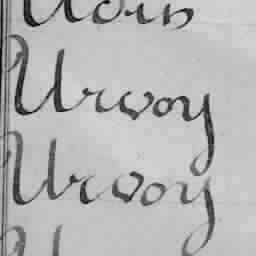 Urvoy
Urvoy